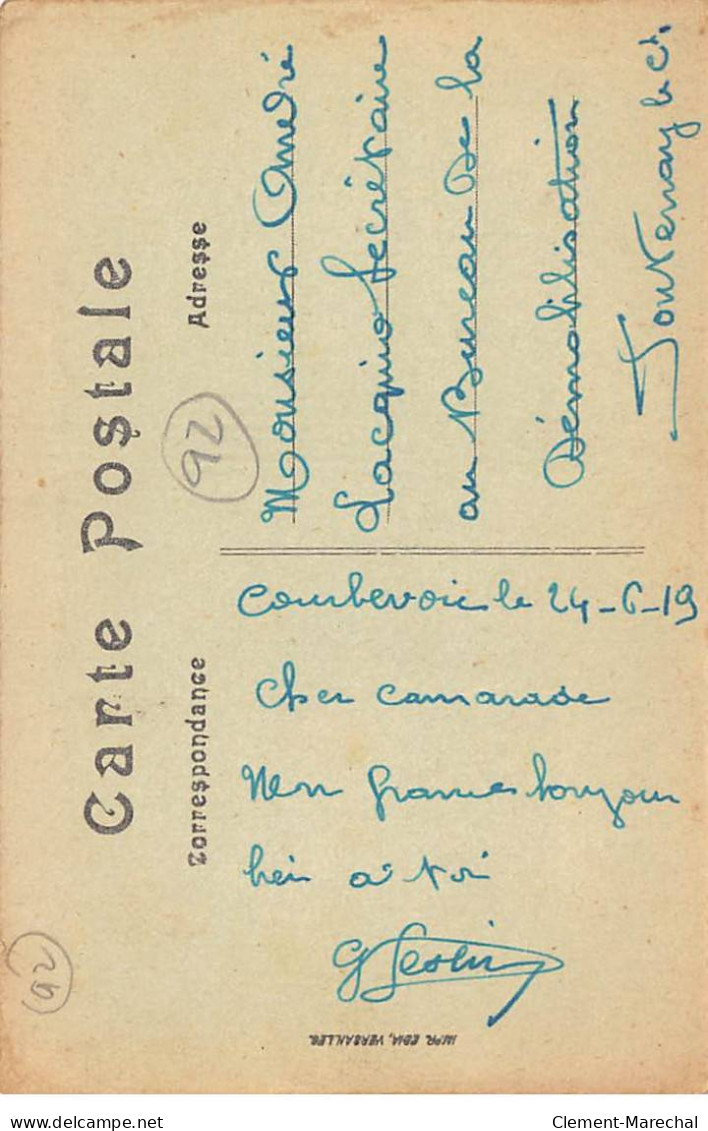 Carte Postale
Correspondance
Adresse
Courbevoie le 24-6-19
Cher camarade
Mon grand bonjour
bien à toi
G
Monsieur André
Lacquio Secrétaire
au Bureau De la
Démobilisation
Fontenay le Ct.
92
92
IMPR. EDIA, VERSAILLES.
delcampe.net
Clement-Marechal